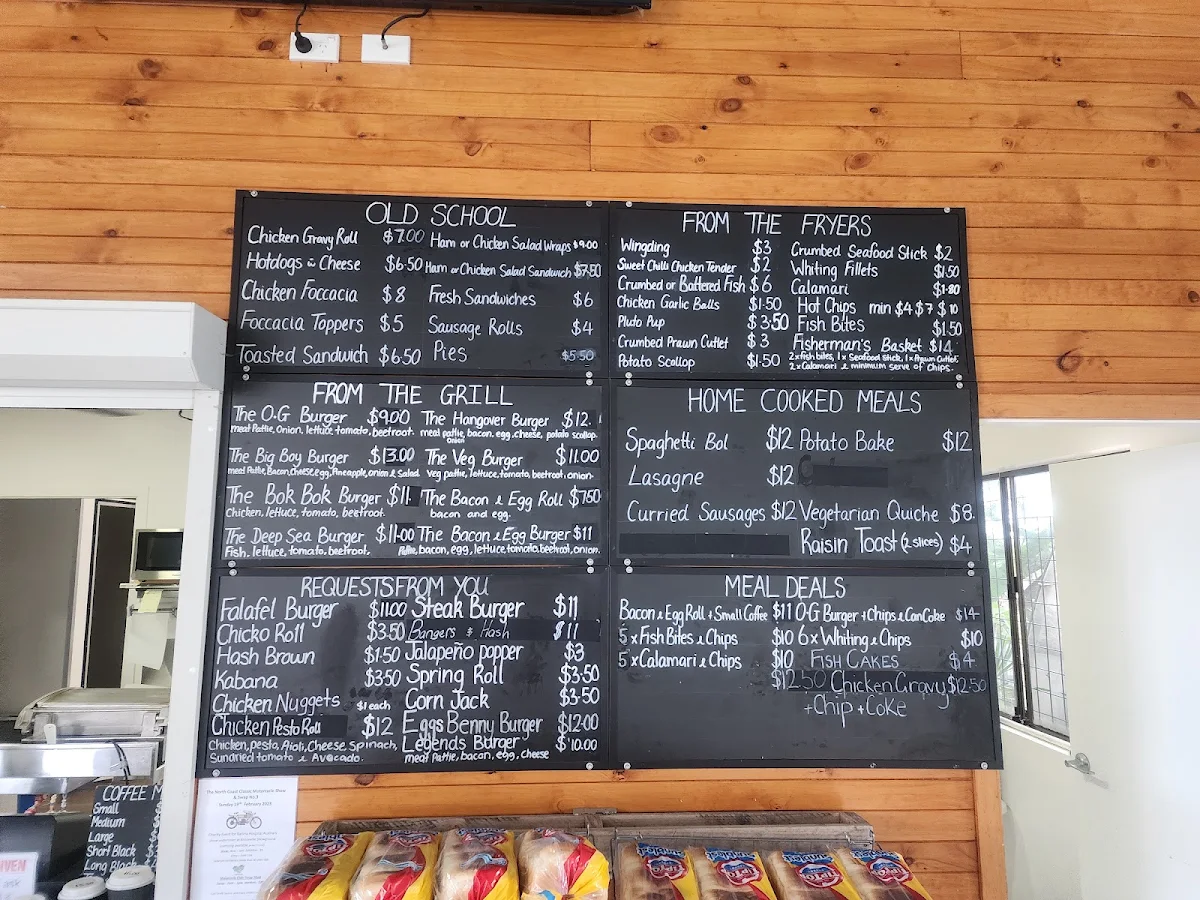 OLD SCHOOL
Chicken Gravy Roll $7.00
Hotdogs & Cheese $6.50
Chicken Foccacia $8
Foccacia Toppers $5
Toasted Sandwich $6.50
Ham or Chicken Salad Wraps $9.00
Ham or Chicken Salad Sandwich $7.50
Fresh Sandwiches $6
Sausage Rolls $4
Pies $5.50
FROM THE FRYERS
Wingding $3
Sweet Chilli Chicken Tender $2
Crumbed or Battered Fish $6
Chicken Garlic Balls $1.50
Pluto Pup $3.50
Crumbed Prawn Cutlet $3
Potato Scollop $1.50
Crumbed Seafood Stick $2
Whiting Fillets $1.50
Calamari $1.80
Hot Chips min $4 $7 $10
Fish Bites $1.50
Fisherman's Basket $14
2x fish bites, 1x Seafood Stick, 1x Prawn Cutlet,
2x Calamari & minimum serve of Chips.
FROM THE GRILL
The O.G Burger $9.00
meat Pattie, Onion, lettuce, tomato, beetroot.
The Big Boy Burger $13.00
meat Pattie, Bacon, Cheese, egg, Pineapple, onion & Salad
The Bok Bok Burger $11
Chicken, lettuce, tomato, beetroot.
The Deep Sea Burger $11.00
Fish, lettuce, tomato, beetroot,
The Hangover Burger $12.
meat pattie, bacon, egg, cheese, potato scollop.
Onion
The Veg Burger $11.00
Veg pattie, lettuce, tomato, beetroot, onion.
The Bacon & Egg Roll $7.50
bacon and egg.
The Bacon & Egg Burger $11
Pattie, bacon, egg, lettuce, tomato, beetroot, onion.
HOME COOKED MEALS
Spaghetti Bol $12
Lasagne $12
Curried Sausages $12
Potato Bake $12
Vegetarian Quiche $8
Raisin Toast (2 slices) $4
REQUESTS FROM YOU
Falafel Burger $11.00
Chicko Roll $3.50
Hash Brown $1.50
Kabana $3.50
Chicken Nuggets $1 each
Chicken Pesto Roll $12
Chicken, pesto, Aioli, Cheese, Spinach,
Sundried tomato & Avocado.
Steak Burger $11
Bangers & Mash $11
Jalapeño popper $3
Spring Roll $3.50
Corn Jack $3.50
Eggs Benny Burger $12.00
Legends Burger $10.00
meat Pattie, bacon, egg, cheese
MEAL DEALS
Bacon & Egg Roll + Small Coffee $11
5 x Fish Bites & Chips $10
5 x Calamari & Chips $10
$12.50
O-G Burger + Chips & Can Coke $14
6 x Whiting & Chips $10
FISH CAKES $4
Chicken Gravy $12.50
+ Chip + Coke
COFFEE
Small
Medium
Large
Short Black
Long Black
The North Coast Classic Motorcycle Show
Tip Top